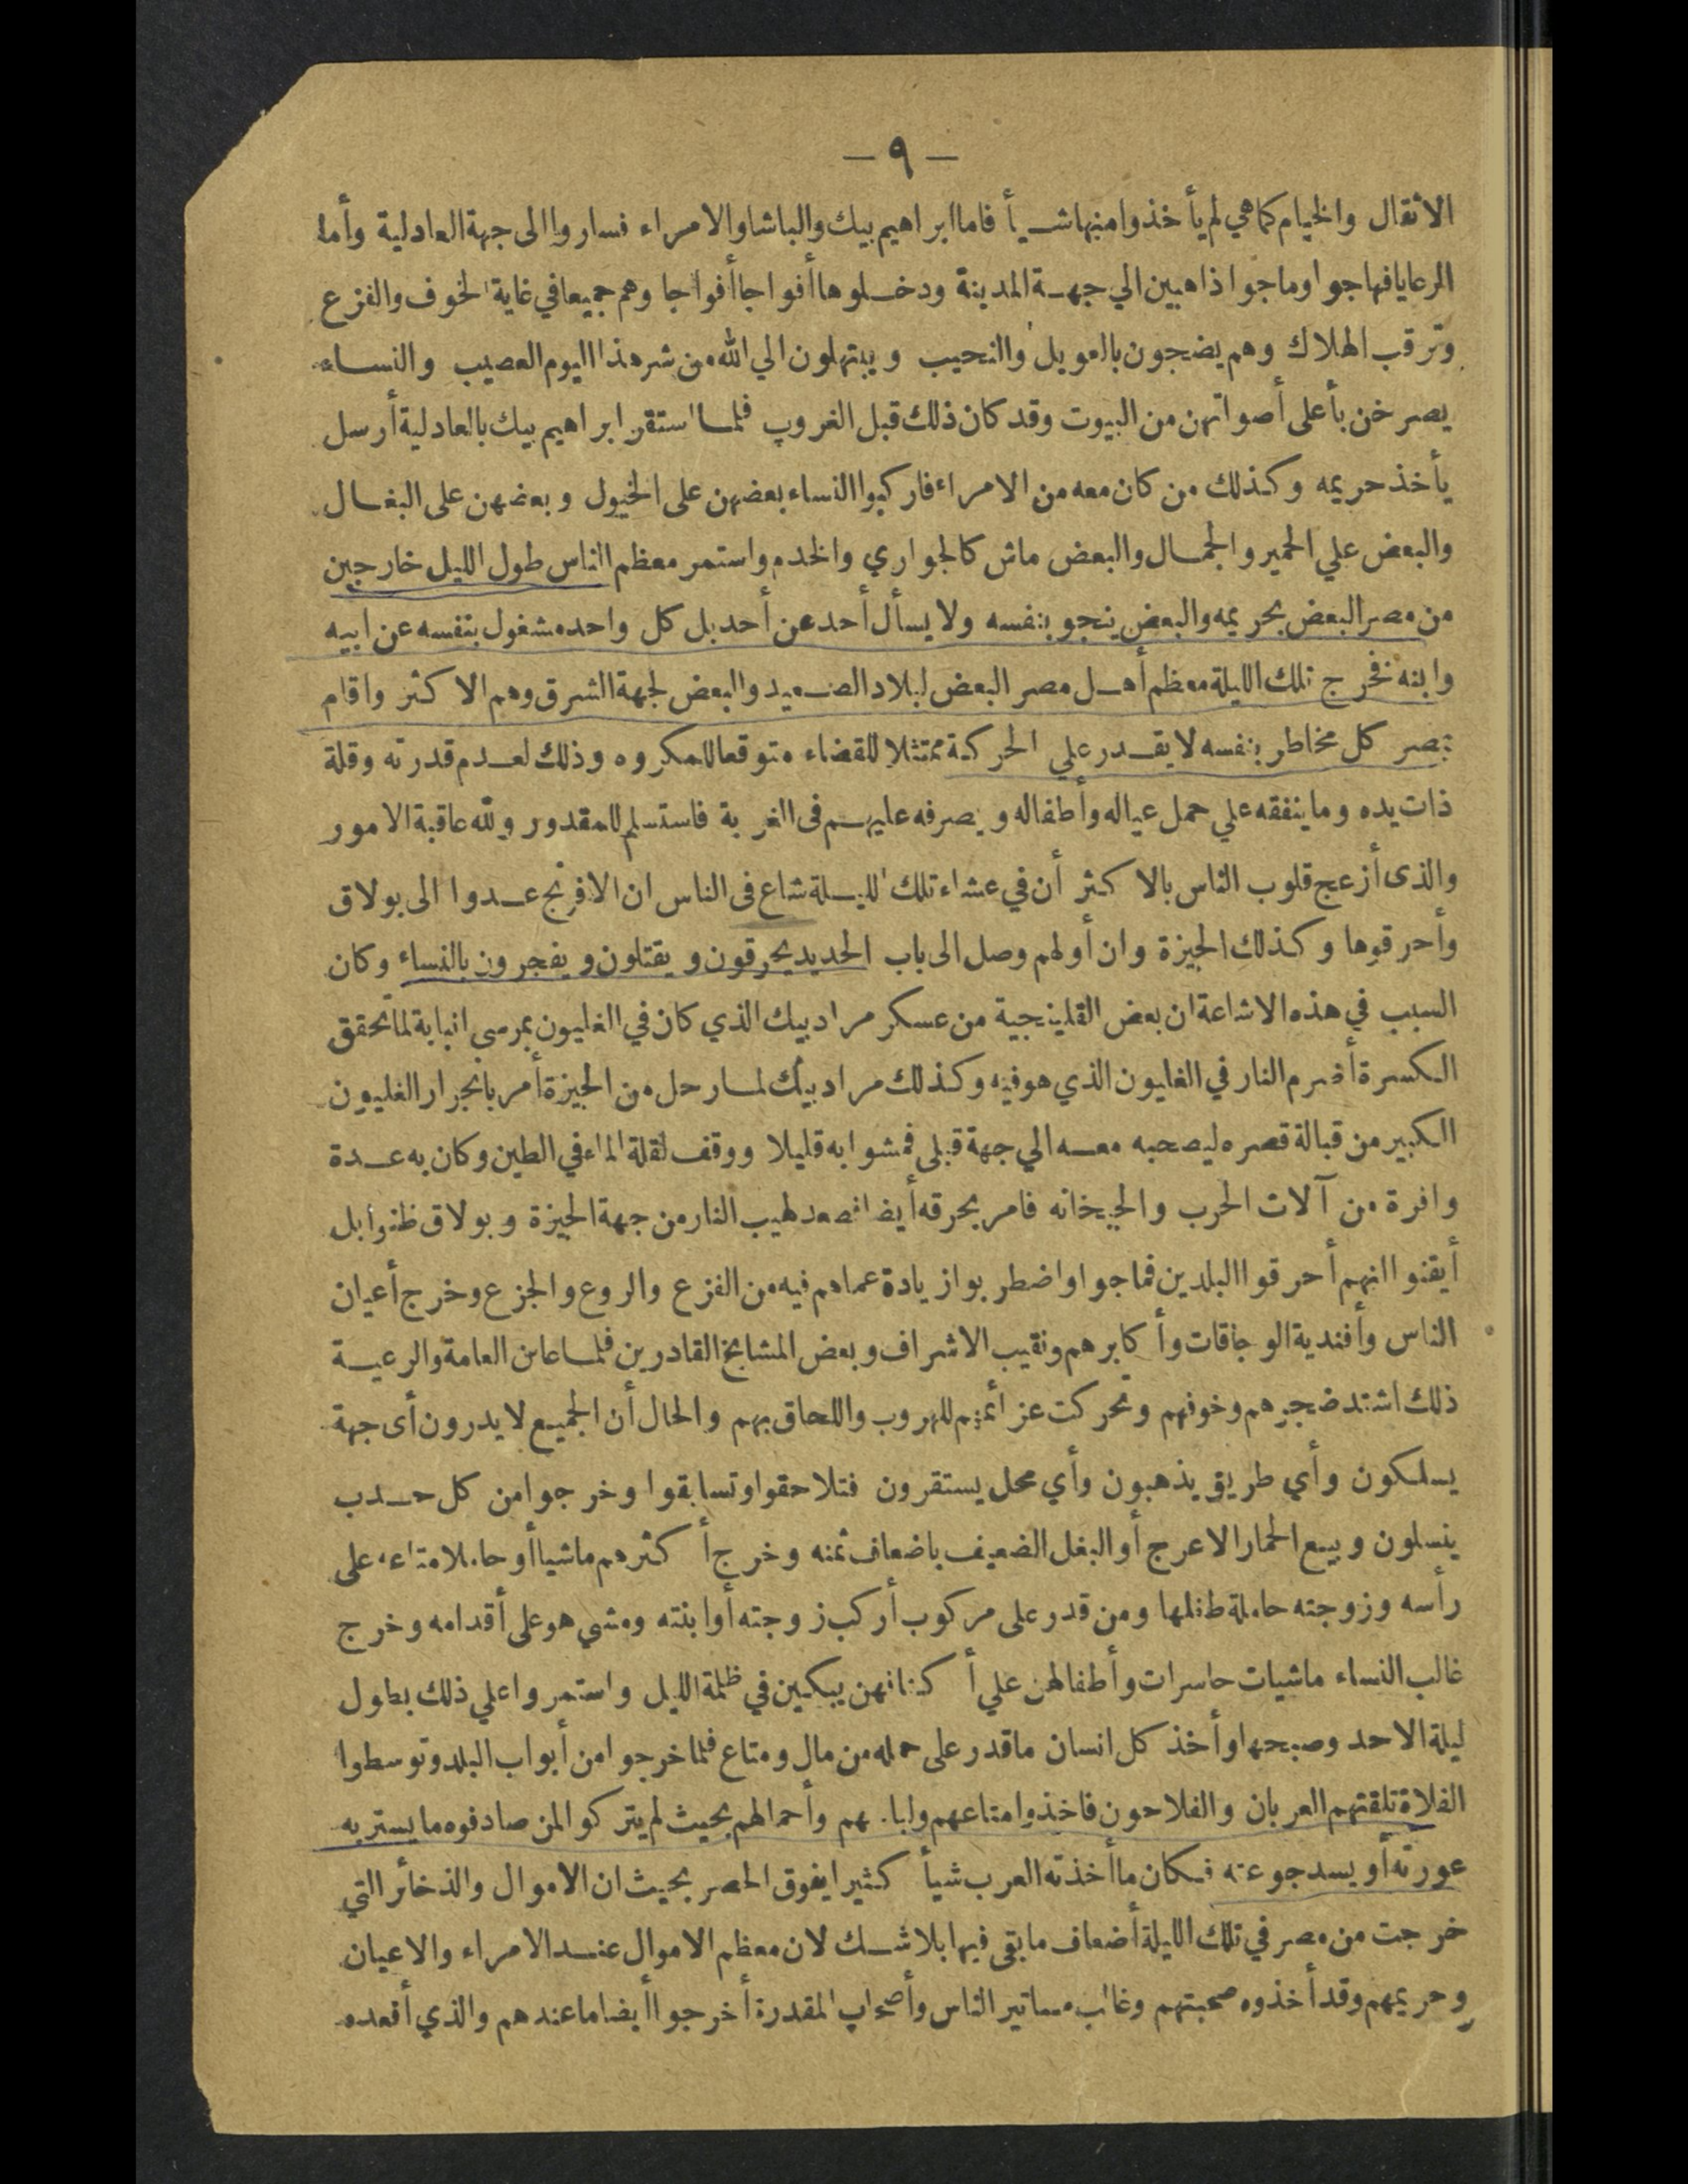 — ٩ —
الاثقال والخيام كما هي لم يأخذوا منها شيأ فاما ابراهيم بيك والباشا والامراء فساروا الى جهة العادلية وأما
الرعايا فهاجوا وماجوا ذاهبين الي جهة المدينة ودخلوها أفواجا أفواجا وهم جميعا في غاية الخوف والفزع
وترقب الهلاك وهم يضجون بالعويل والنحيب ويبتهلون الي الله من شر هذا اليوم العصيب والنساء
يصرخن بأعلى أصواتهن من البيوت وقد كان ذلك قبل الغروب فلما استقر ابراهيم بيك بالعادلية أرسل
يأخذ حريمه وكذلك من كان معه من الامراء فاركبوا النساء بعضهن على الخيول وبعضهن على البغال
والبعض علي الحمير والجمال والبعض ماش كالجواري والخدم واستمر معظم الناس طول الليل خارجين
من مصر البعض بحريمه والبعض ينجو بنفسه ولا يسأل أحد عن أحد بل كل واحد مشغول بنفسه عن ابيه
وابنه فخرج تلك الليلة معظم أهل مصر البعض لبلاد الصعيد والبعض لجهة الشرق وهم الاكثر واقام
بمصر كل مخاطر بنفسه لا يقدر علي الحركة ممتثلا للقضاء متوقعا للمكروه وذلك لعدم قدرته وقلة
ذات يده وما ينفقه علي حمل عياله وأطفاله ويصرفه عليهم في الغربة فاستسلم للمقدور ولله عاقبة الامور
والذى أزعج قلوب الناس بالاكثر أن في عشاء تلك الليلة شاع فى الناس ان الافرنج عدوا الى بولاق
وأحرقوها وكذلك الجيزة وان أولهم وصل الى باب الحديد يحرقون ويقتلون ويفجرون بالنساء وكان
السبب في هذه الاشاعة ان بعض القلينجية من عسكر مراد بيك الذي كان في الغليون بمرسى انبابة لما تحقق
الكسرة أضرم النار في الغليون الذي هو فيه وكذلك مراد بيك لما رحل من الجيزة أمر بانجرار الغليون
الكبير من قبالة قصره ليصحبه معه الي جهة قبلى فمشوا به قليلا ووقف لقلة الماء في الطين وكان به عدة
وافرة من آلات الحرب والجبخانه فامر بحرقه أيضا فصعد لهيب النار من جهة الجيزة وبولاق ظنوا بل
أيقنوا انهم أحرقوا البلدين فماجوا واضطربوا زيادة عما هم فيه من الفزع والروع والجزع وخرج أعيان
الناس وأفندية الوجاقات وأكابرهم ونقيب الاشراف وبعض المشايخ القادرين فلما عاين العامة والرعية
ذلك اشتد ضجرهم وخوفهم وتحركت عزائمهم للهروب واللحاق بهم والحال أن الجميع لا يدرون أى جهة
يسلكون وأي طريق يذهبون وأي محل يستقرون فتلاحقوا وتسابقوا وخرجوا من كل حدب
ينسلون وبيع الحمار الاعرج أو البغل الضعيف باضعاف ثمنه وخرج أكثرهم ماشيا أو حاملا متاعه على
رأسه وزوجته حاملة طفلها ومن قدر على مركوب أركب زوجته أو ابنته ومشي هو على أقدامه وخرج
غالب النساء ماشيات حاسرات وأطفالهن علي أكتافهن يبكين في ظلمة الليل واستمروا علي ذلك بطول
ليلة الاحد وصبحها وأخذ كل انسان ما قدر على حمله من مال ومتاع فلما خرجوا من أبواب البلد وتوسطوا
الفلاة تلقتهم العربان والفلاحون فاخذوا متاعهم ولباسهم وأحمالهم بحيث لم يتركوا لمن صادفوه ما يستر به
عورته أو يسد جوعته فكان ما أخذته العرب شيأ كثيرا يفوق الحصر بحيث ان الاموال والذخائر التي
خرجت من مصر في تلك الليلة أضعاف ما بقى فيها بلا شك لان معظم الاموال عند الامراء والاعيان
وحريمهم وقد أخذوه صحبتهم وغالب مساتير الناس وأصحاب المقدرة أخرجوا أيضا ما عندهم والذي أقعده